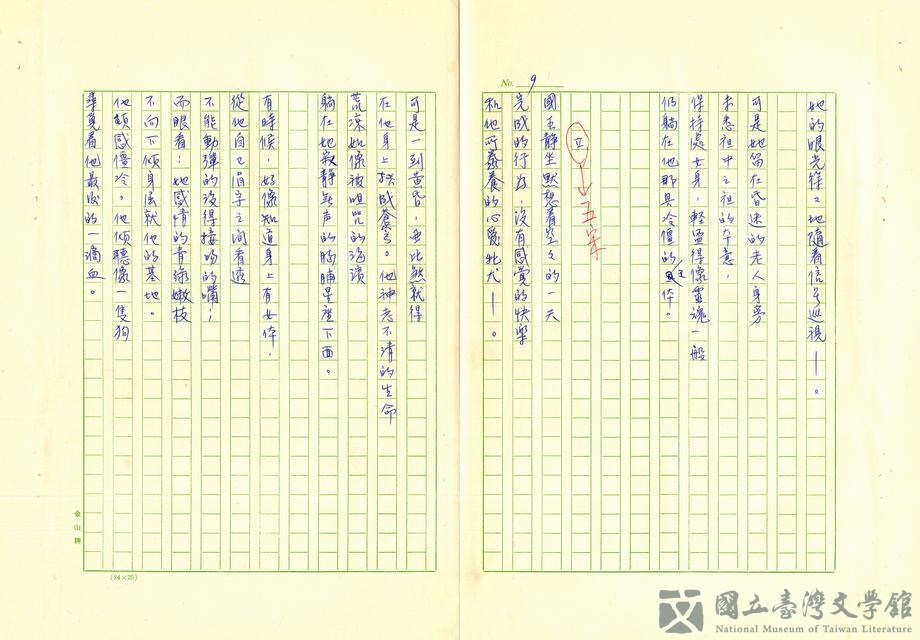 No. 9
她的眼光徐々地隨着信号巡視—。
可是她留在昏迷的老人身旁
未悉袓中之祖的本意，
保持處女身，輕盈得像靈魂一般
仍躺在他那具冷僵的王体。
Ⅱ → 五字
國王靜坐默想着空々的一天
完成的行出，沒有感覺的快樂
和他所豢養的心愛牝犬—。
可是一到黃昏，亜比煞就得
在他身上拱成蒼穹。他神志不清的生命
荒凉如像被咀咒的海濱
躺在她寂靜無声的胸脯星座下面。
有時候，好像知道身上有女体，
從他自己眉宇之間看透
不能動彈的沒得接吻的嘴；
而眼看：她感情的青綠嫩枝
不向下傾身遷就他的基地。
他頓感僵冷。他傾聽像一隻狗
尋覓着他最後的一滴血。
金山牌
(24×25)
國立臺灣文學館
National Museum of Taiwan Literature